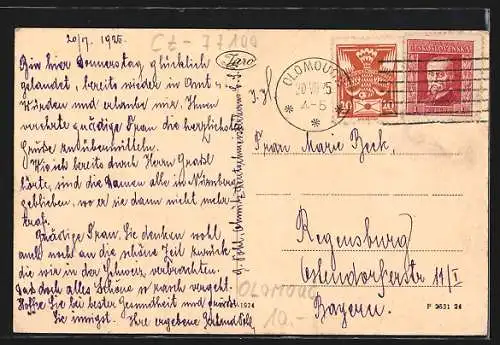 20/7. 1925
Cz-77100
Bin hier Donnerstag glücklich
gelandet, bereits wieder in Amt u.
Würden und erlaube mir, Ihnen
verehrte gnädige Frau die herzlichsten
Grüße zu übermitteln.
Wie ich bereits durch Herrn
hörte, sind die Damen alle in Nürnberg
geblieben, wo er sie dann nicht mehr
traf.
Gnädige Frau, Sie denken wohl
auch noch an die schöne Zeit zurück
die wir in der Schweiz verbrachten.
Daß doch alles Schöne so rasch vergeht.
Hoffe Sie bei bester Gesundheit und
Sie innigst. Ihre ergebene
3.38
OLOMOUC
20 VII 25
4-5
ČESKOSLOVENSKÁ
Frau Marie Beck,
Regensburg
11/I
Bayern.
OLOMOUC
10.-
1924
P 2631 24